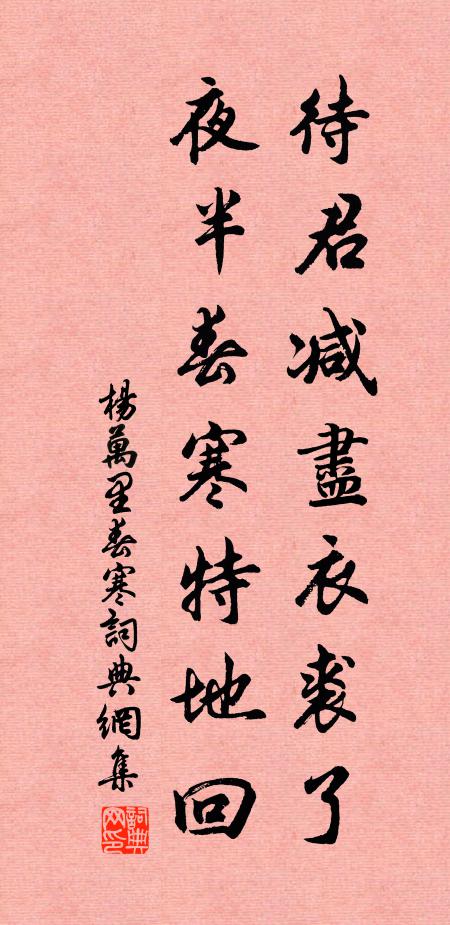 待君减盡衣裘了
夜半春寒特地回
楊萬里春寒詞典網集
詞典網印